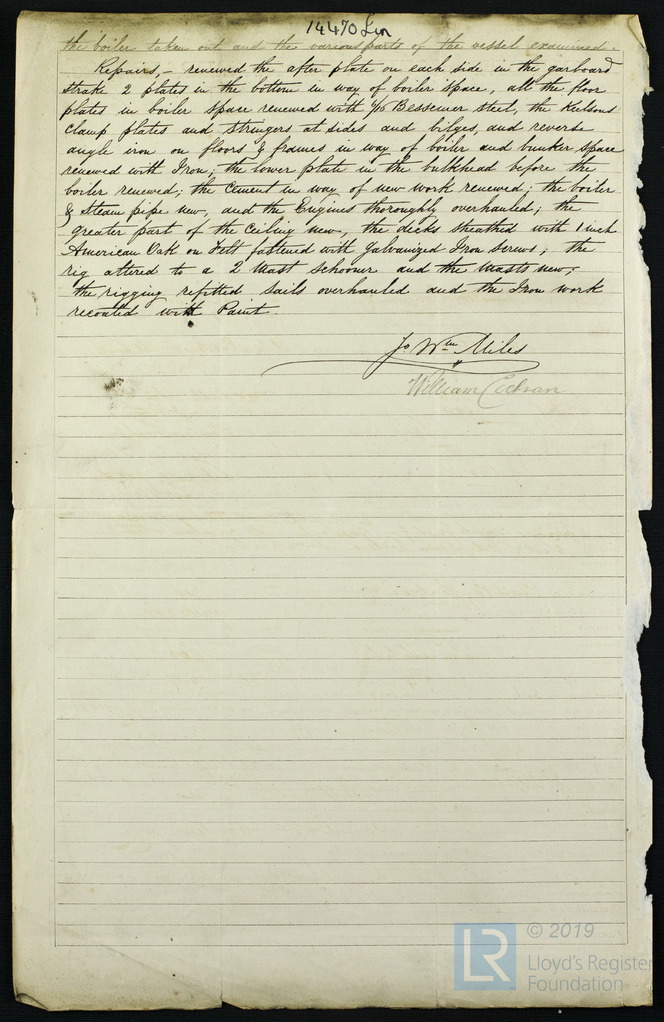 14470 Lon
the boiler taken out and the various parts of the vessel examined.
Repairs, – renewed the after plate on each side in the garboard
strake 2 plates in the bottom in way of boiler space, all the floor
plates in boiler space renewed with Bessemer steel, the Kelsons
clamp plates and stringers at sides and bilges, and reverse
angle iron on floors & frames in way of boiler and bunker space
renewed with Iron; the lower plate in the bulkhead before the
boiler renewed; the cement in way of new work renewed; the boiler
& Steam pipe new, and the Engines thoroughly overhauled; the
greater part of the ceiling new, the decks sheathed with 1 inch
American Oak on Felt fastened with Galvanized Iron screws; the
rig altered to a 2 Mast Schooner and the Masts new;
the rigging refitted sails overhauled and the Iron work
recoated with Paint.
Jo Wm Miles
William Cochran
LR
© 2019
Lloyd's Register
Foundation